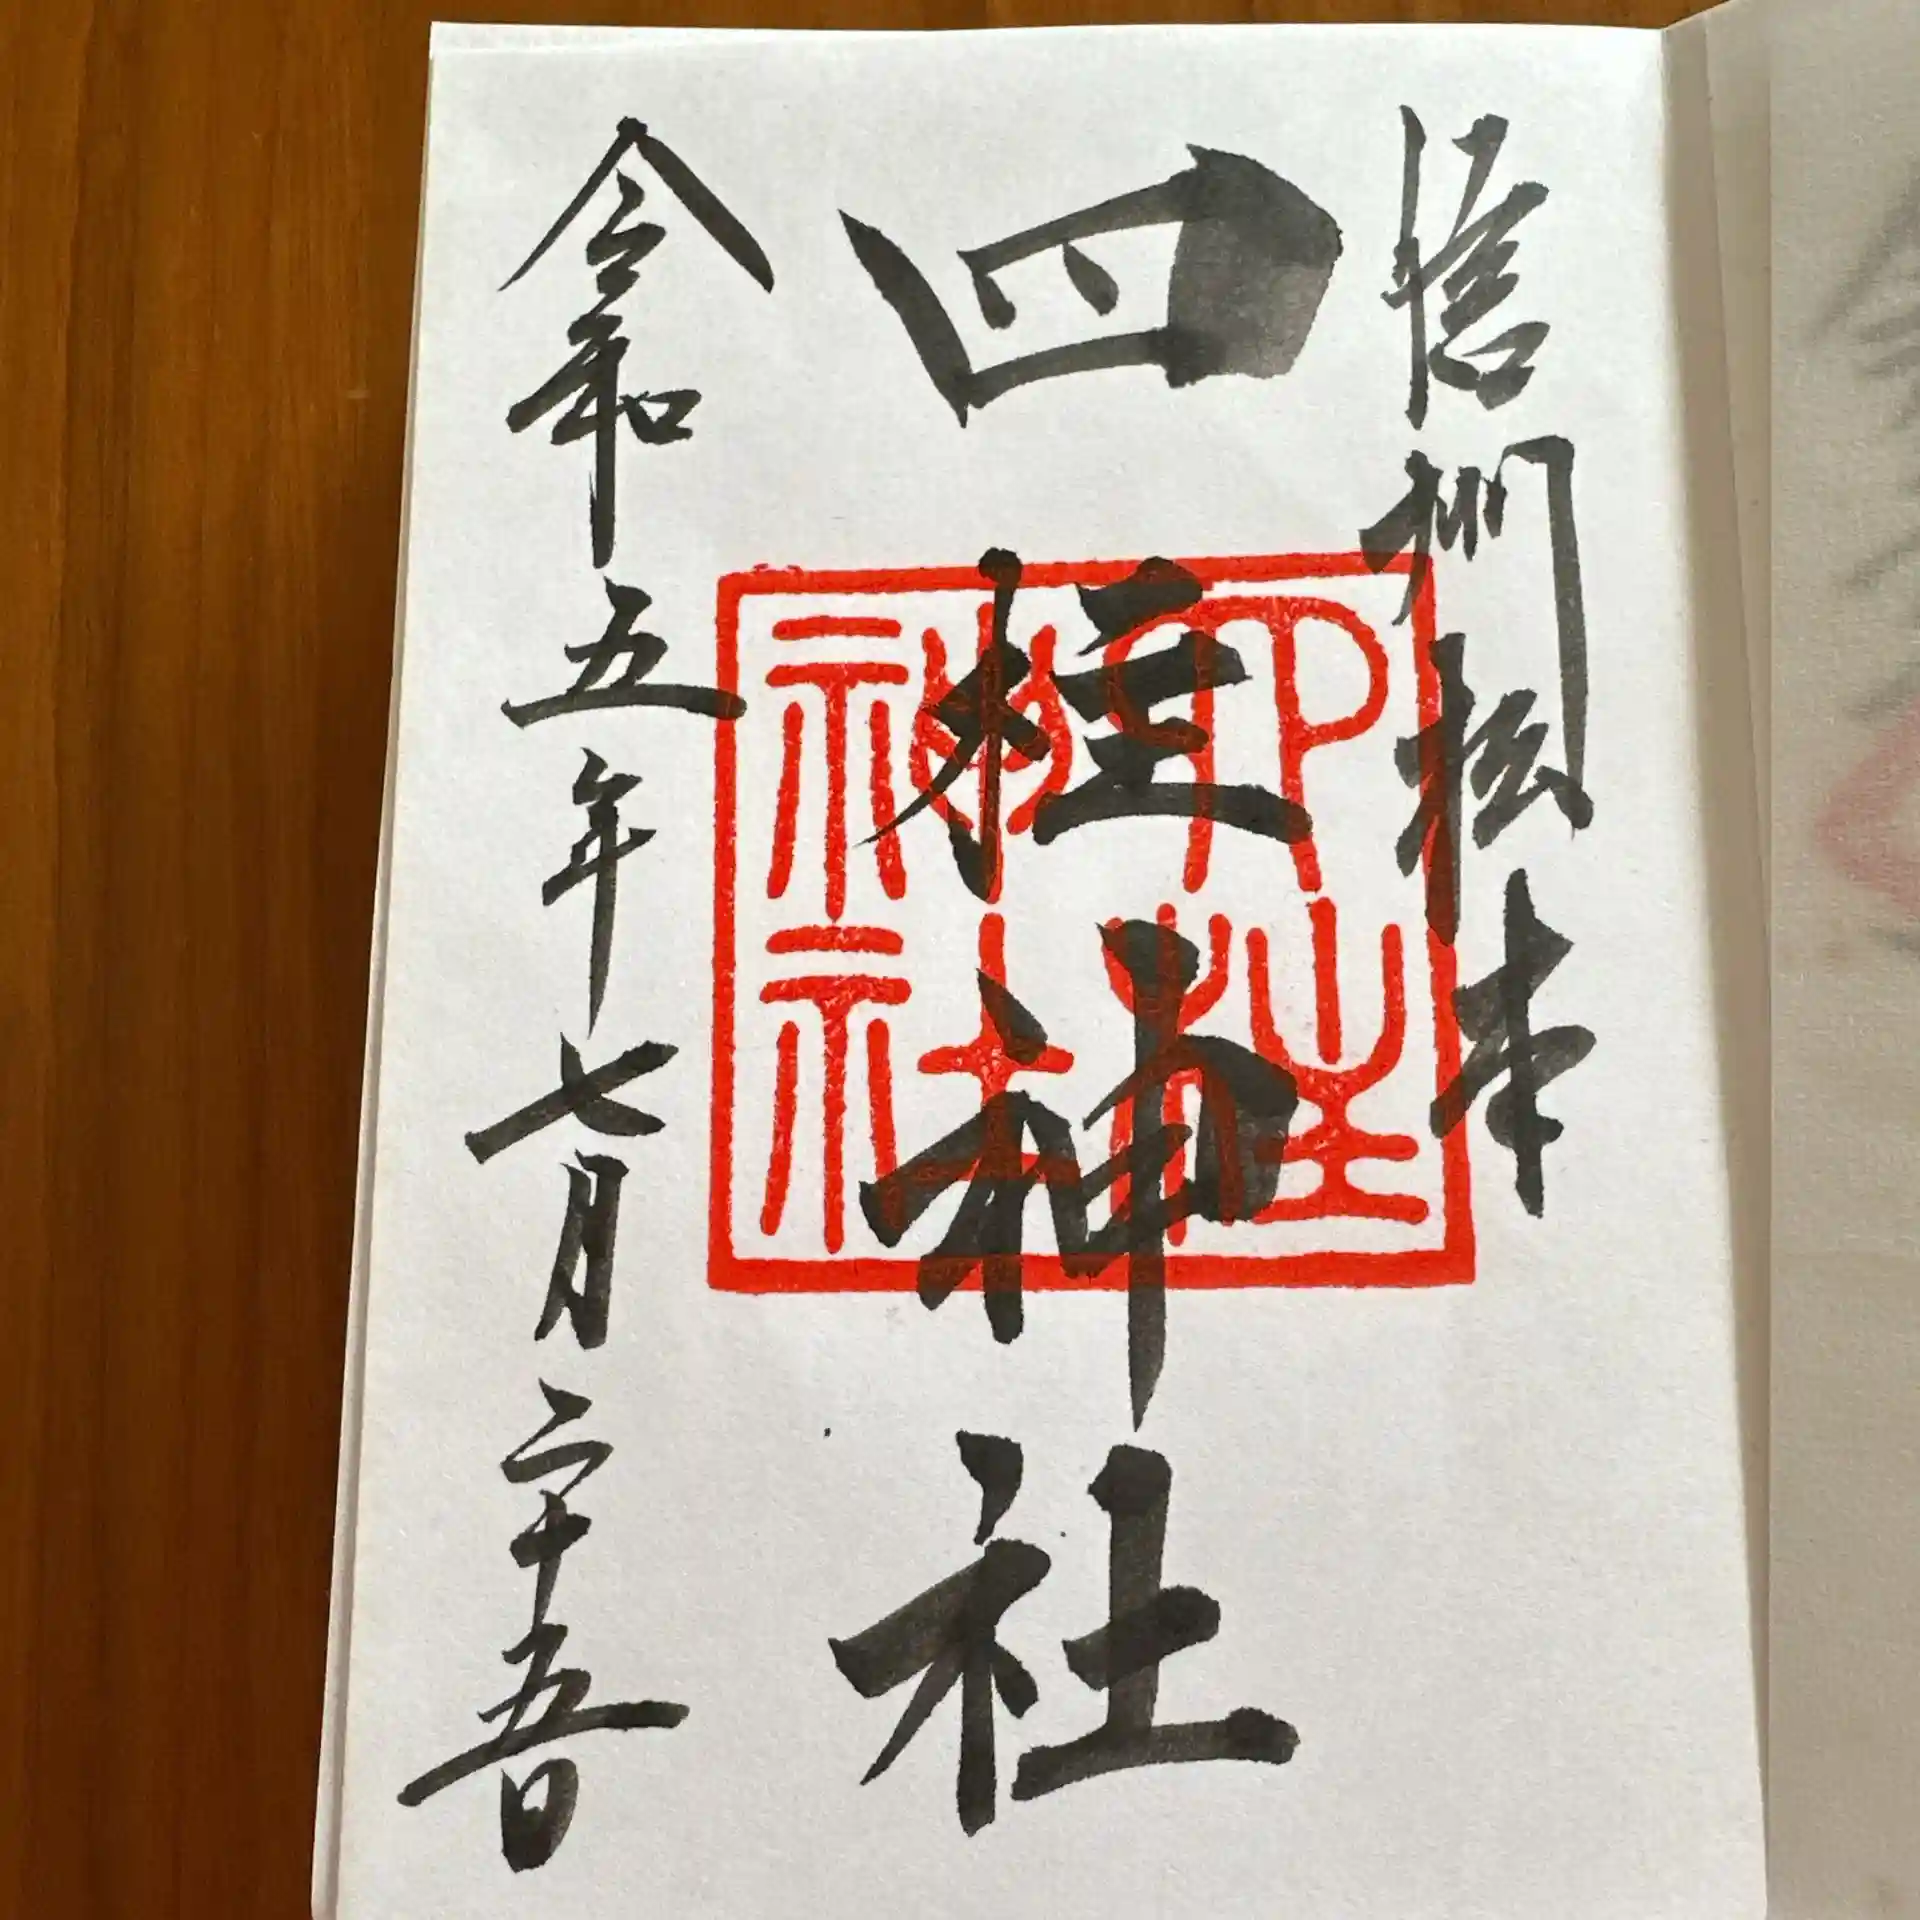 信州松本
四柱神社
四柱神社
令和五年七月二十五日